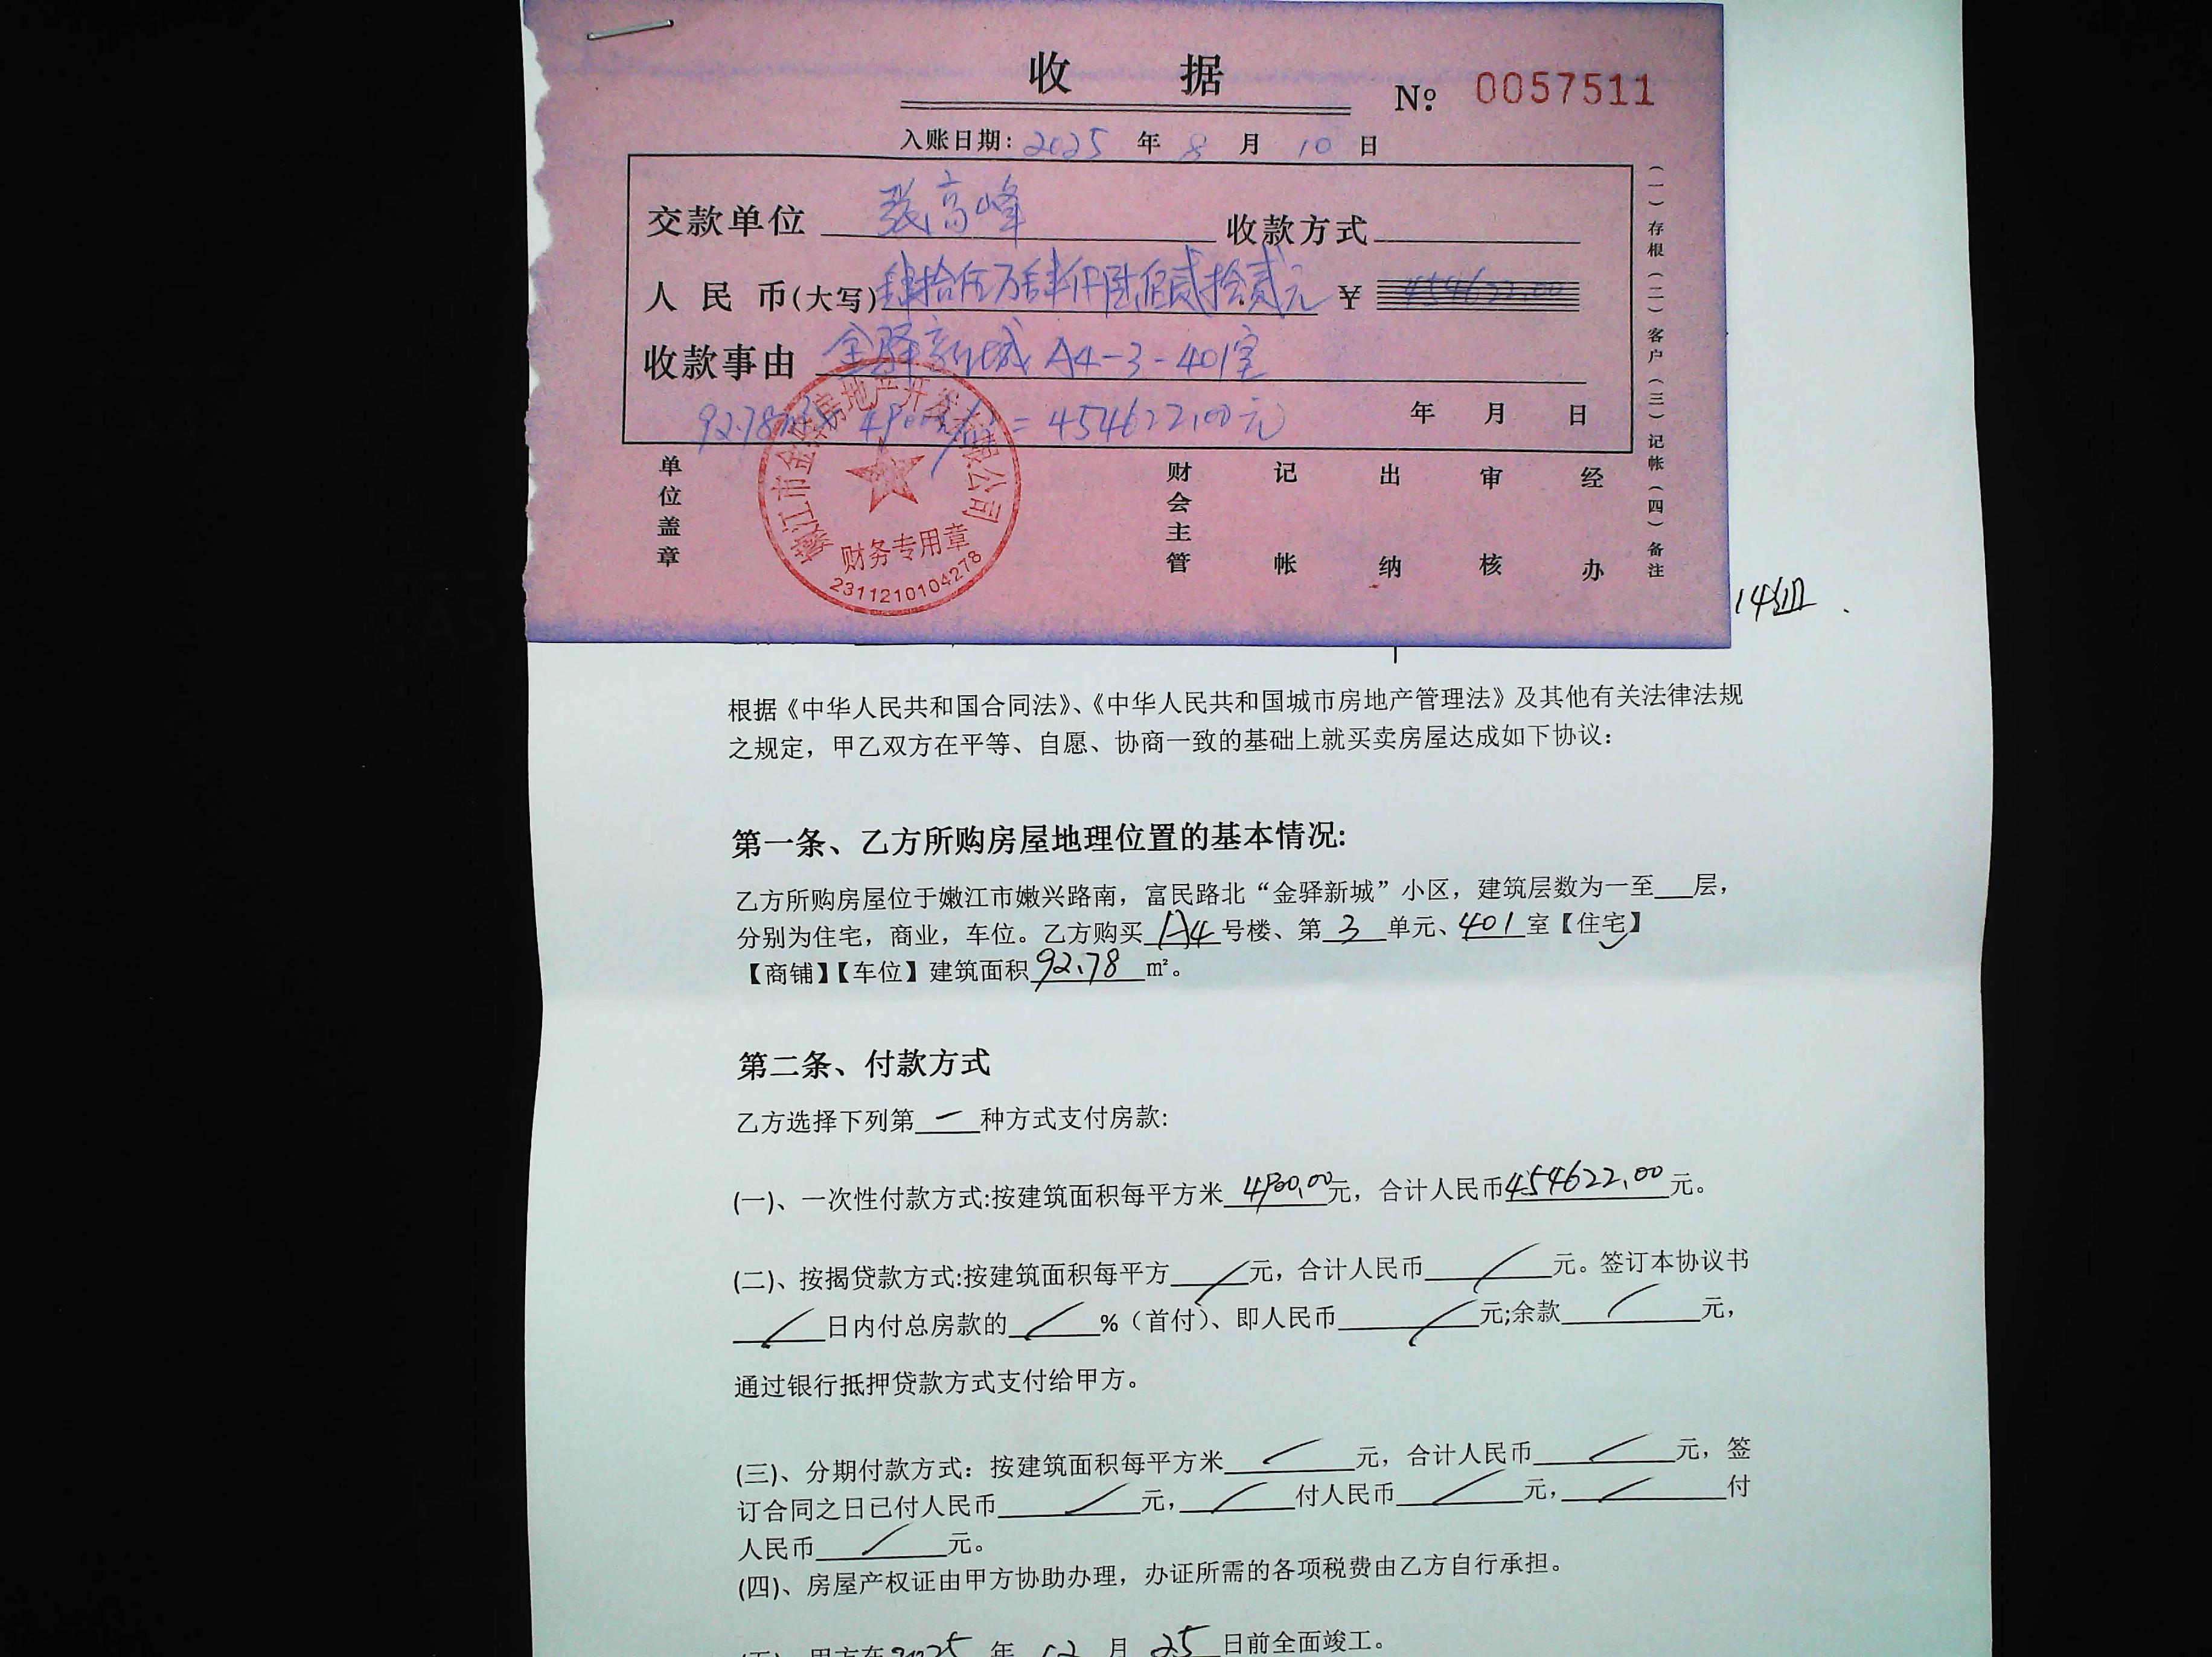 收 据
№ 0057511
入账日期: 2025 年 8 月 10 日
交款单位 张高峰 收款方式
人民币(大写) 肆拾伍万肆仟陆佰贰拾贰元 ¥ 454622.00
收款事由 金驿新城 A4-3-401室
92.78m²× 4900元/m² = 454622.00元 年 月 日
单位盖章 财会主管 记帐 出纳 审核 经办
(一)存根(二)客户(三)记帐(四)备注
嫩江市金驿房地产开发有限公司
财务专用章
2311210104278
14组
根据《中华人民共和国合同法》、《中华人民共和国城市房地产管理法》及其他有关法律法规
之规定，甲乙双方在平等、自愿、协商一致的基础上就买卖房屋达成如下协议：
第一条、乙方所购房屋地理位置的基本情况:
乙方所购房屋位于嫩江市嫩兴路南，富民路北“金驿新城”小区，建筑层数为一至___层，
分别为住宅，商业，车位。乙方购买 A4 号楼、第 3 单元、401 室【住宅】
【商铺】【车位】建筑面积 92.78 m²。
第二条、付款方式
乙方选择下列第 一 种方式支付房款:
(一)、一次性付款方式:按建筑面积每平方米 4900.00元，合计人民币454622.00元。
(二)、按揭贷款方式:按建筑面积每平方 / 元，合计人民币 / 元。签订本协议书
/ 日内付总房款的 / %（首付）、即人民币 / 元;余款 / 元，
通过银行抵押贷款方式支付给甲方。
(三)、分期付款方式：按建筑面积每平方米 / 元，合计人民币 / 元，签
订合同之日已付人民币 / 元， / 付人民币 / 元， / 付
人民币 / 元。
(四)、房屋产权证由甲方协助办理，办证所需的各项税费由乙方自行承担。
(五)、甲方在2025 年 12 月 25 日前全面竣工。